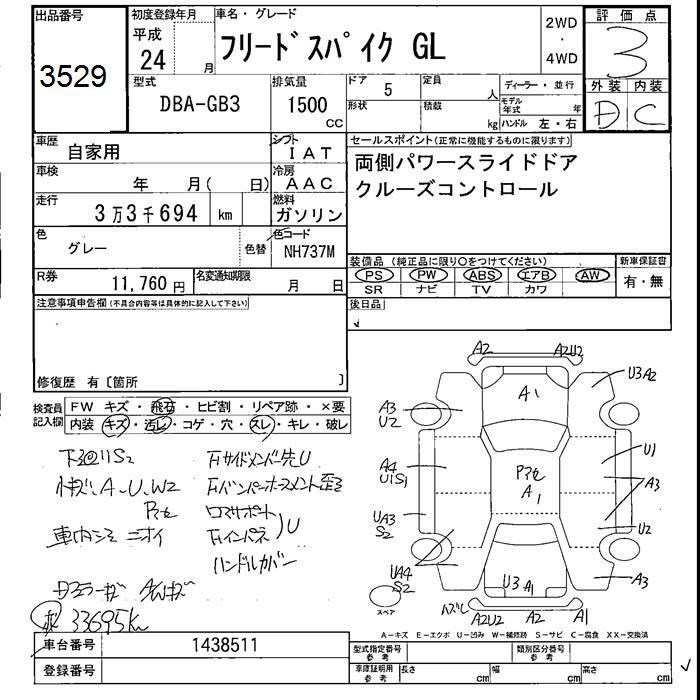 出品番号
3529
初度登録年月
平成
24 月
車名・グレード
フリードスパイク GL
2WD
・
4WD
評価点
3
外装 内装
D C
型式
DBA-GB3
排気量
1500
CC
ドア
5
定員
人
形状
積載
kg
ディーラー・並行
モデル年式
年
ハンドル 左・右
車歴
自家用
シフト
IAT
車検
年 月( 日)
冷房
AAC
走行
3万3千694 km
燃料
ガソリン
色
グレー
色替
色コード
NH737M
R券
11,760 円
名変通知期限
月 日
セールスポイント(正常に機能するものに限ります)
両側パワースライドドア
クルーズコントロール
装備品 (純正品に限り○をつけてください)
PS PW ABS エアB AW
SR ナビ TV カワ
新車保証書
有・無
後日品
注意事項申告欄(不具合内容等は具体的に記入して下さい)
修復歴 有〔箇所 〕
検査員
記入欄
FW キズ・飛石・ヒビ割・リペア跡・×要
内装 キズ・汚レ・コゲ・穴・スレ・キレ・破レ
下廻りS2
小キズ、A、U、W2
車内シミ ニオイ
ハンドルカバー
33695km
A2 A2U2
A1
U3A2
A3
U2
A4
U1S1
U1
A3
A1
UA3
S2
U2
UA4
S2
U3 A1
A3
ハズレ
A2U2 A2 A1
スペア
A－キズ E－エクボ U－凹み W－補修跡 S－サビ C－腐食 XX－交換済
車台番号
1438511
登録番号
型式指定番号
参考
類別区分番号
参考
車庫証明用
参考
長さ cm 幅 cm 高さ cm